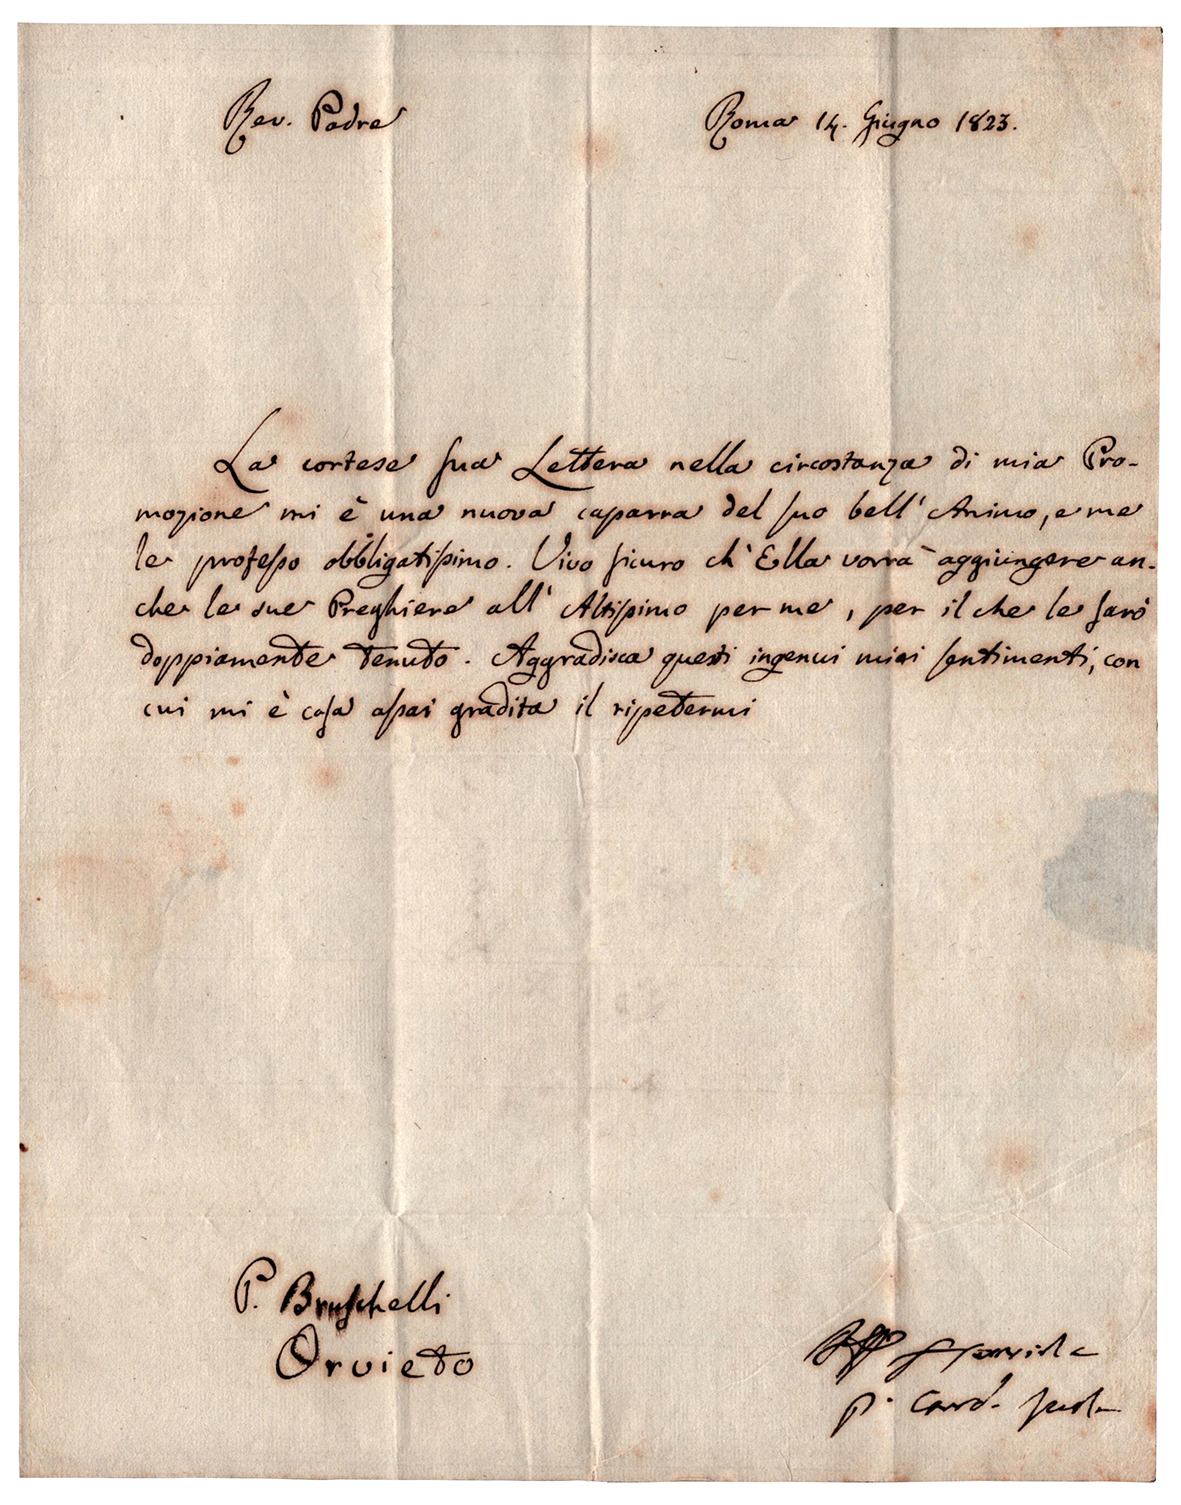 Rev. Padre
Roma 14. Giugno 1823.
La cortese sua Lettera nella circostanza di mia Pro-
mozione mi è una nuova caparra del suo bell' Animo, e me
le professo obbligatissimo. Vivo sicuro ch' Ella vorrà aggiungere an-
che le sue Preghiere all' Altissimo per me, per il che le sarò
doppiamente tenuto. Aggradisca questi ingenui miei sentimenti, con
cui mi è cosa assai gradita il ripetermi
P. Bruschelli
Orvieto
Aff
P. Card.